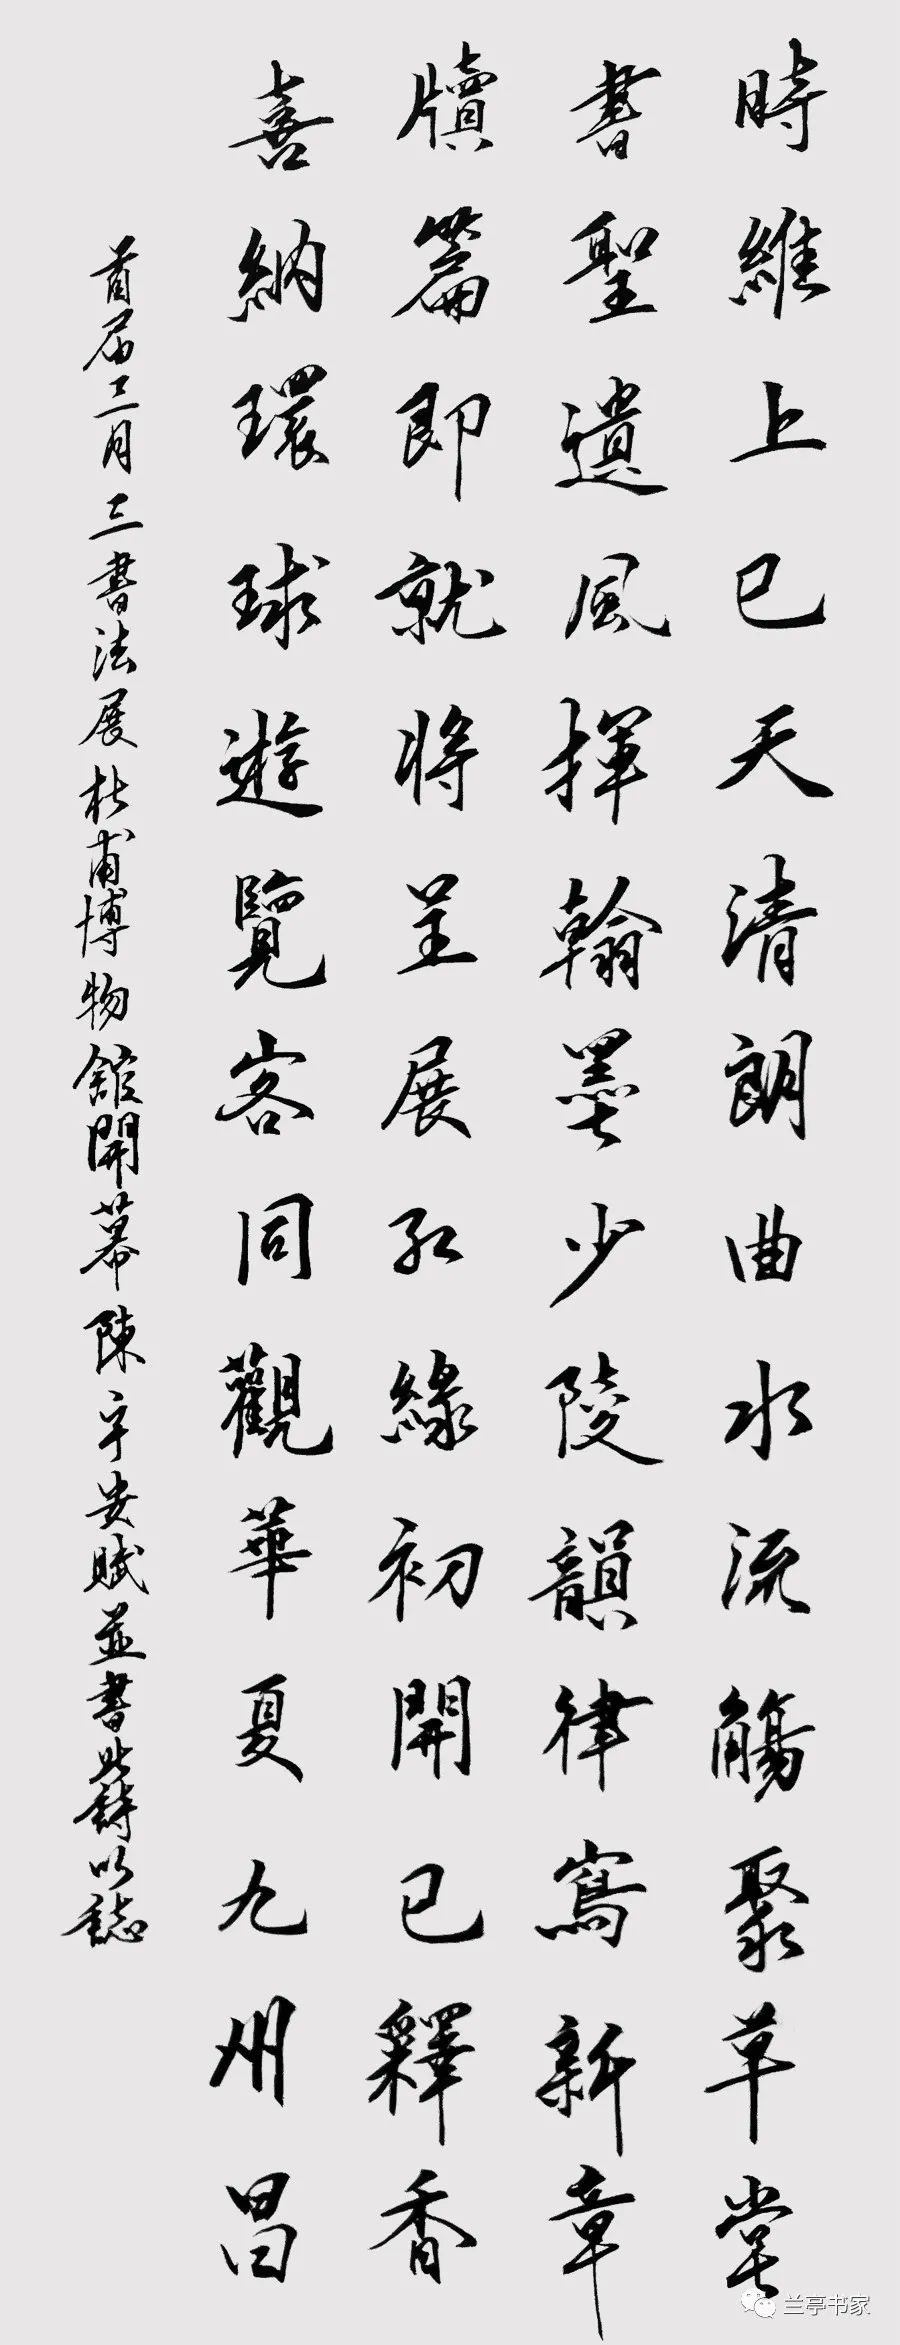 時維上巳天清朗曲水流觴聚草堂
書聖遺風揮翰墨少陵韻律寫新章
牘篇即就將呈展紅緣初開已釋香
喜納環球遊覽客同觀華夏九州昌
首届三月三書法展杜甫博物館開幕陳宇安賦並書此詩以誌
兰亭书家